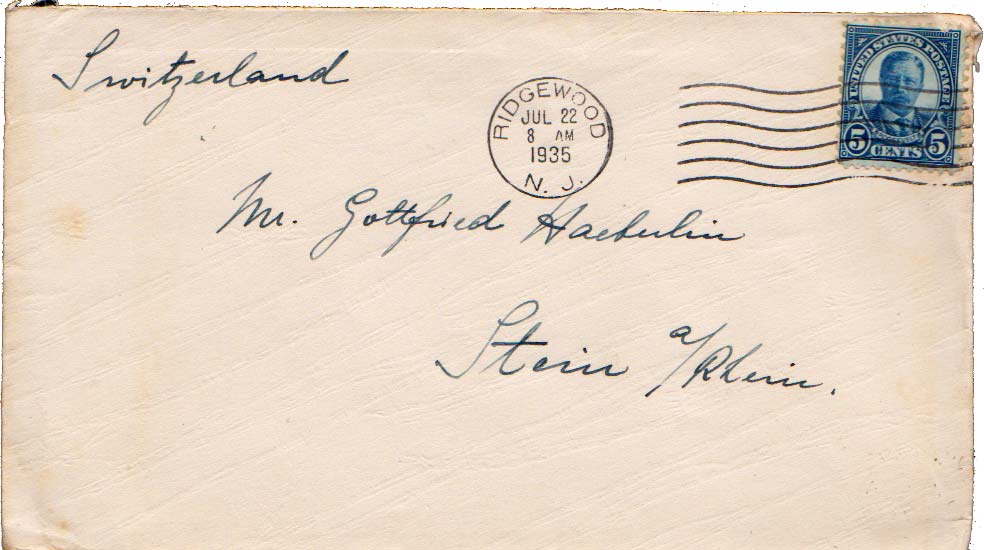 Switzerland
RIDGEWOOD
JUL 22
8 AM
1935
N. J.
UNITED STATES POSTAGE
5 CENTS 5
Mr. Gottfried Haeberlin
Stein a/Rhein.